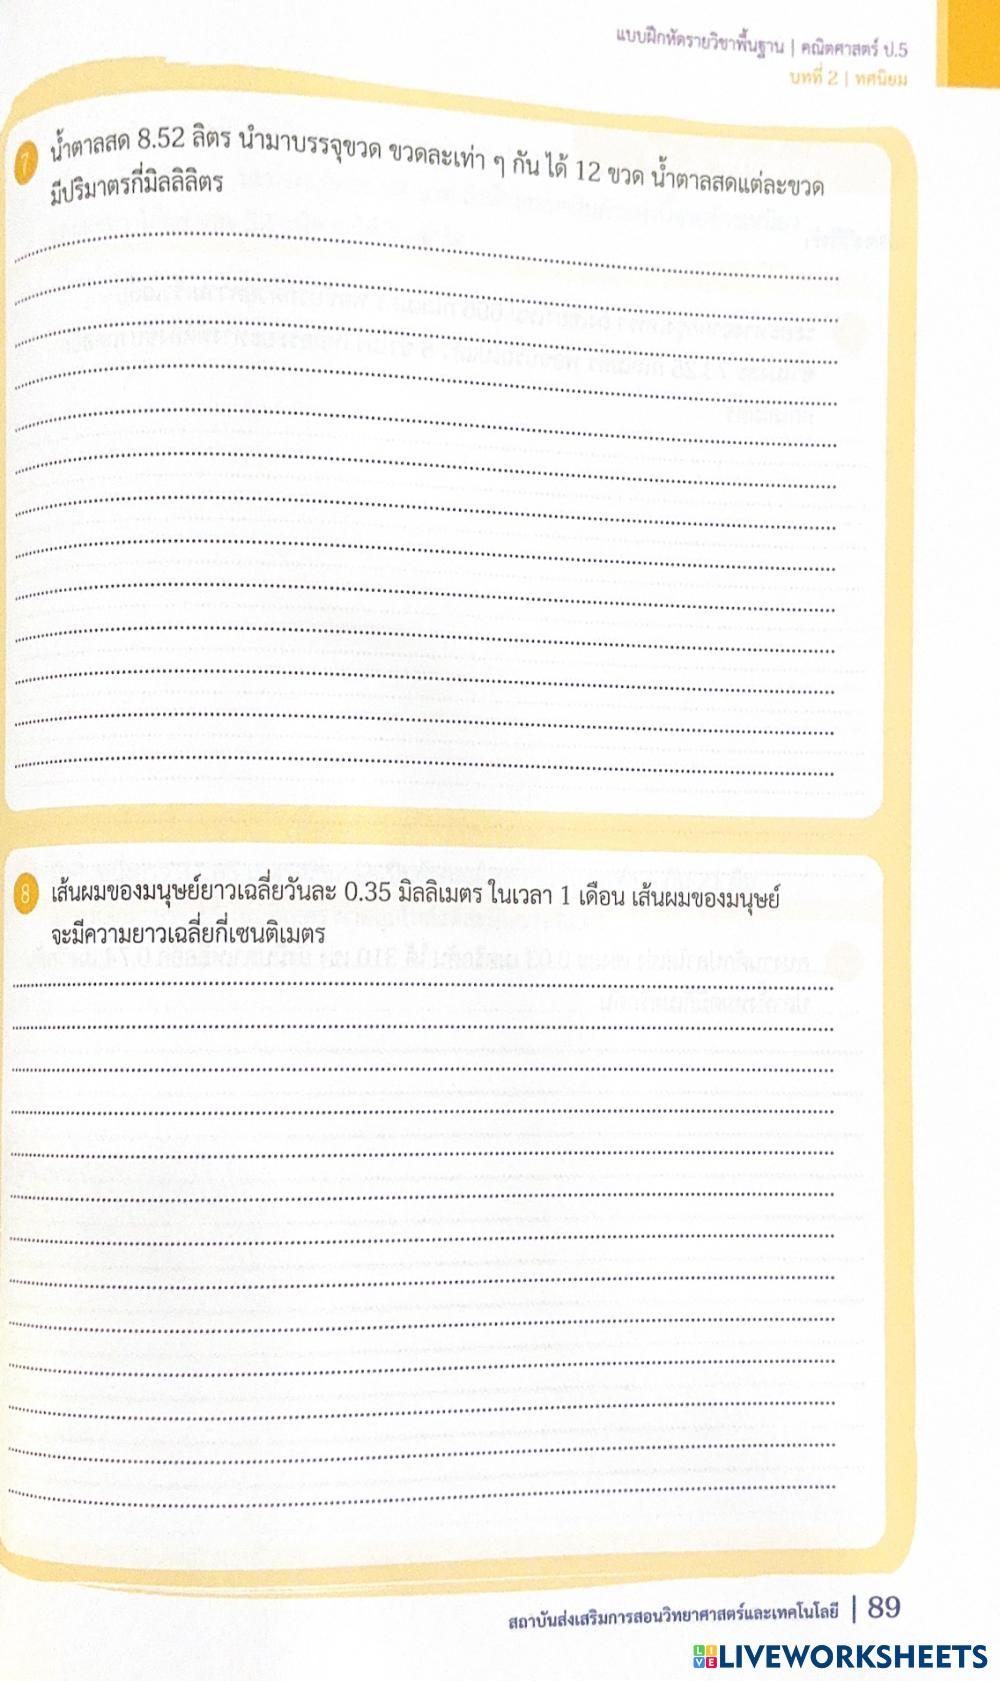 แบบฝึกหัดรายวิชาพื้นฐาน | คณิตศาสตร์ ป.5
บทที่ 2 | ทศนิยม
7 น้ำตาลสด 8.52 ลิตร นำมาบรรจุขวด ขวดละเท่า ๆ กัน ได้ 12 ขวด น้ำตาลสดแต่ละขวด
มีปริมาตรกี่มิลลิลิตร
8 เส้นผมของมนุษย์ยาวเฉลี่ยวันละ 0.35 มิลลิเมตร ในเวลา 1 เดือน เส้นผมของมนุษย์
จะมีความยาวเฉลี่ยกี่เซนติเมตร
สถาบันส่งเสริมการสอนวิทยาศาสตร์และเทคโนโลยี | 89
LIVE LIVEWORKSHEETS